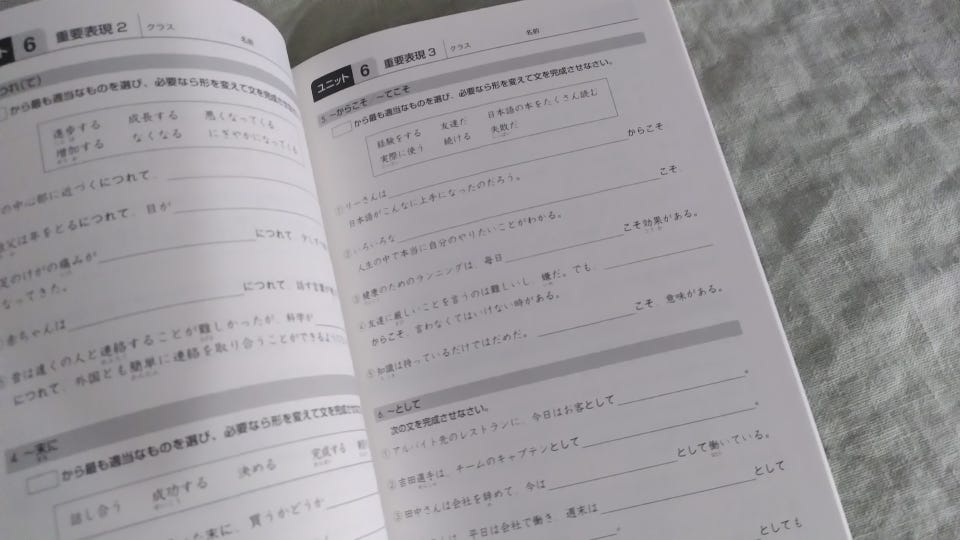 ト 6 重要表現 2 クラス 名前
つれ(て)
から最も適当なものを選び、必要なら形を変えて文を完成させ
進歩する 成長する 悪くなってくる
増加する なくなる にぎやかになってくる
の中心部に近づくにつれて、
祖父は年をとるにつれて、目が
足のけがの痛みが につれて、
なってきた。
赤ちゃんは につれて、話す言葉
昔は遠くの人と連絡することが難しかったが、科学が
につれて、外国とも簡単に連絡を取り合うことができるように
4 ~末に
から最も適当なものを選び、必要なら形を変えて文を完成
話し合う 成功する 決める 完成する
た末に、買うかどうか
ユニット 6 重要表現 3 クラス 名前
5 ~からこそ ~てこそ
から最も適当なものを選び、必要なら形を変えて文を完成させなさい。
経験をする 友達だ 日本語の本をたくさん読む
実際に使う 続ける 失敗だ
①リーさんは からこそ
日本語がこんなに上手になったのだろう。
②いろいろな こそ、
人生の中で本当に自分のやりたいことがわかる。
③健康のためのランニングは、毎日 こそ効果がある。
④友達に厳しいことを言うのは難しいし、嫌だ。でも、
からこそ、言わなくてはいけない時がある。
⑤知識は持っているだけではだめだ。 こそ、意味がある。
6 ~として
次の文を完成させなさい。
①アルバイト先のレストランに、今日はお客として 。
②吉田選手は、チームのキャプテンとして 。
③田中さんは会社を辞めて、今は として働いている。
は、平日は会社で働き、週末は として
。
としても